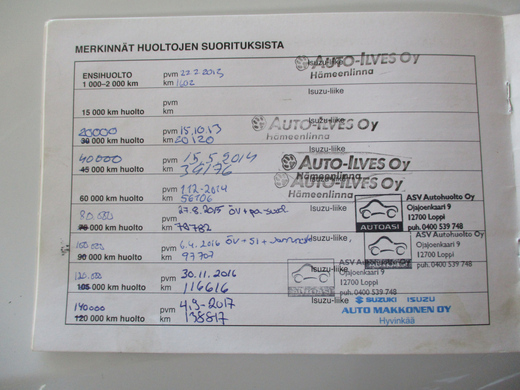 MERKINNÄT HUOLTOJEN SUORITUKSISTA
ENSIHUOLTO pvm 22.2 2013 Isuzu-liike AUTO-ILVES OY
1 000–2 000 km km 1602 Hämeenlinna
pvm Isuzu-liike
15 000 km huolto km
20000 pvm 15.10.13 Isuzu-liike AUTO-ILVES Oy
30 000 km huolto km 20120 Hämeenlinna
40000 pvm 15.5.2014 Isuzu-liike AUTO-ILVES OY
45 000 km huolto km 39176 Hämeenlinna
pvm 1.12-2014 Isuzu-liike AUTO-ILVES OY
60 000 km huolto km 56106 Hämeenlinna
80.000 pvm 27.8.2015 ÖV + Isuzu-liike
75 000 km huolto km 78782
AUTOASI
ASV Autohuolto Oy
Ojajoenkaari 9
12700 Loppi
puh. 0400 539 748
100.000 pvm 6.4.2016 ÖV + SI + Isuzu-liike
90 000 km huolto km 97707
ASV Autohuolto Oy
Ojajoenkaari 9
12700 Loppi
puh. 0400 539 748
120.000 pvm 30.11.2016 Isuzu-liike
105 000 km huolto km 116616
ASV Autohuolto Oy
Ojajoenkaari 9
12700 Loppi
puh. 0400 539 748
140000 pvm 4.9-2017 Isuzu-liike SUZUKI ISUZU
120 000 km huolto km 138817 AUTO MAKKONEN OY
Hyvinkää